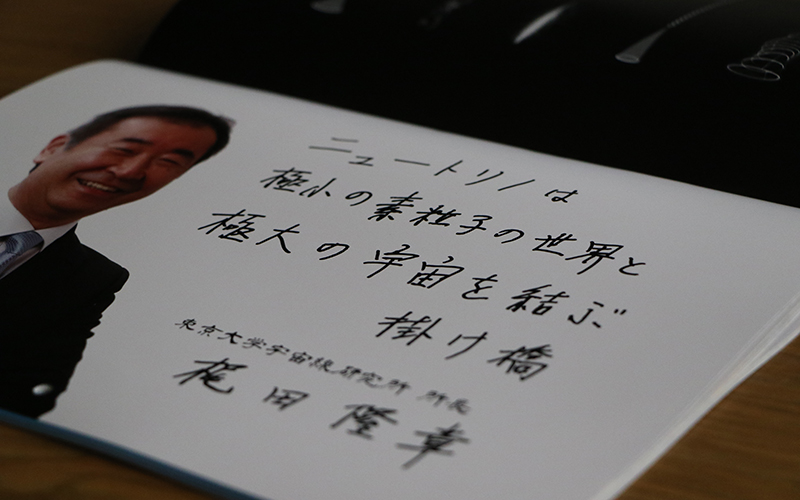 ニュートリノは
極小の素粒子の世界と
極大の宇宙を結ぶ
掛け橋
東京大学宇宙線研究所 所長
梶田隆章